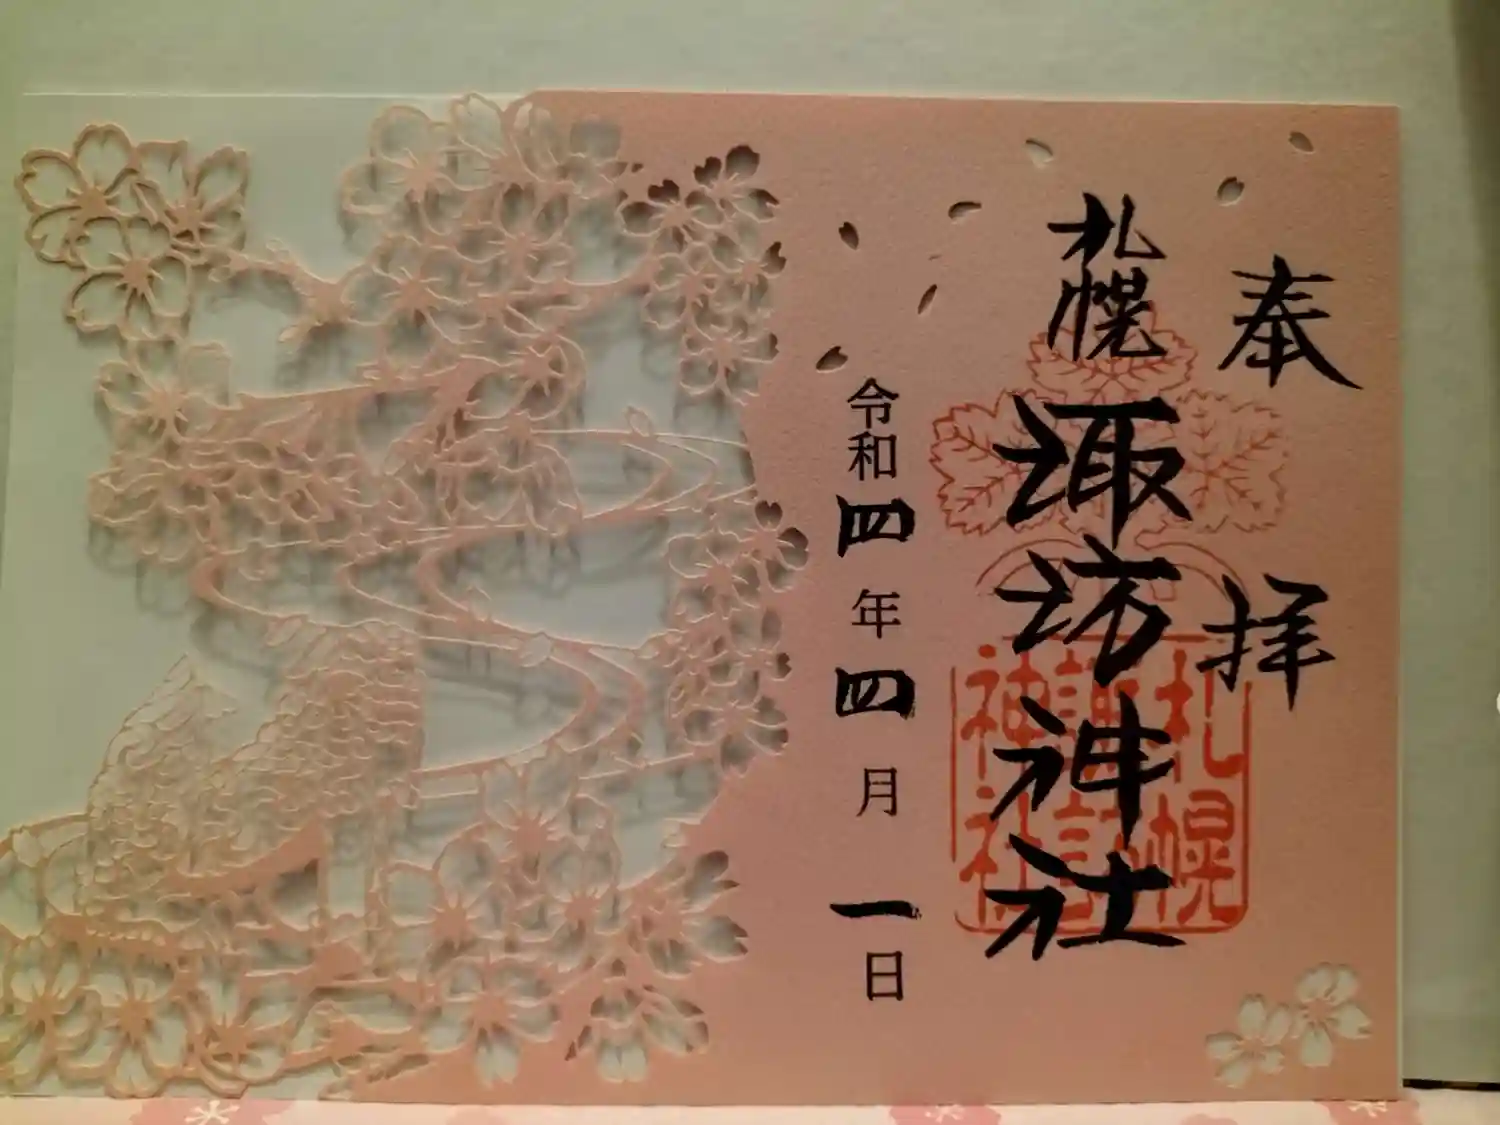 奉拝
札幌諏訪神社
札幌
諏訪
神社
令和四年四月一日